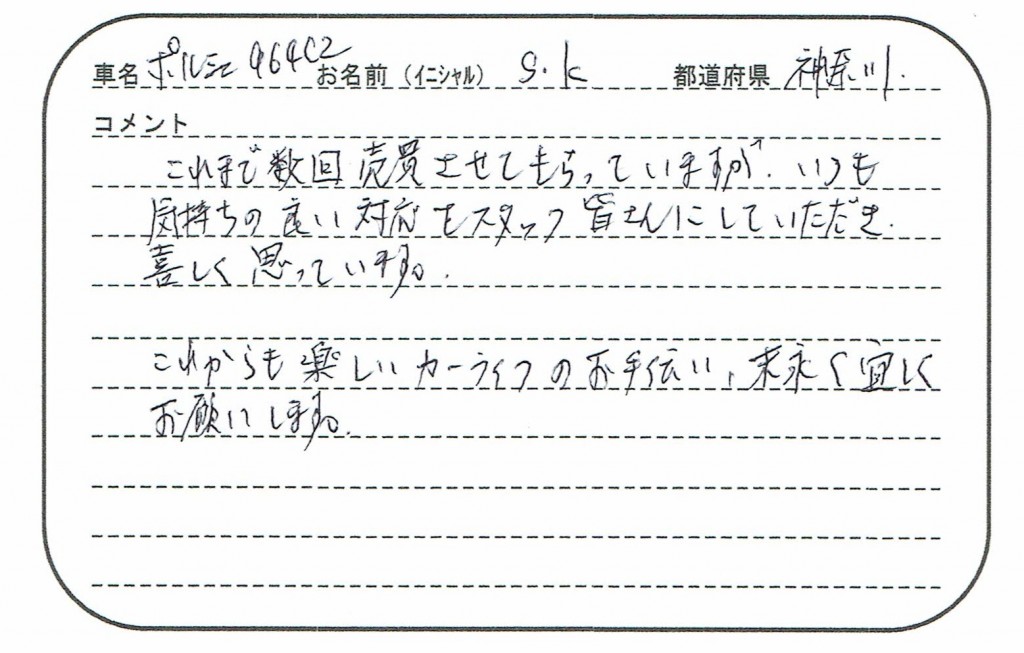 車名 ポルシェ 964C2 お名前 (イニシャル) S・K 都道府県 神奈川.
コメント
これまで数回売買させてもらっていますが、いつも
気持ちの良い対応をスタッフ皆さんにしていただき、
喜しく思っています。
これからも楽しいカーライフのお手伝い、末永く宜しく
お願いします。